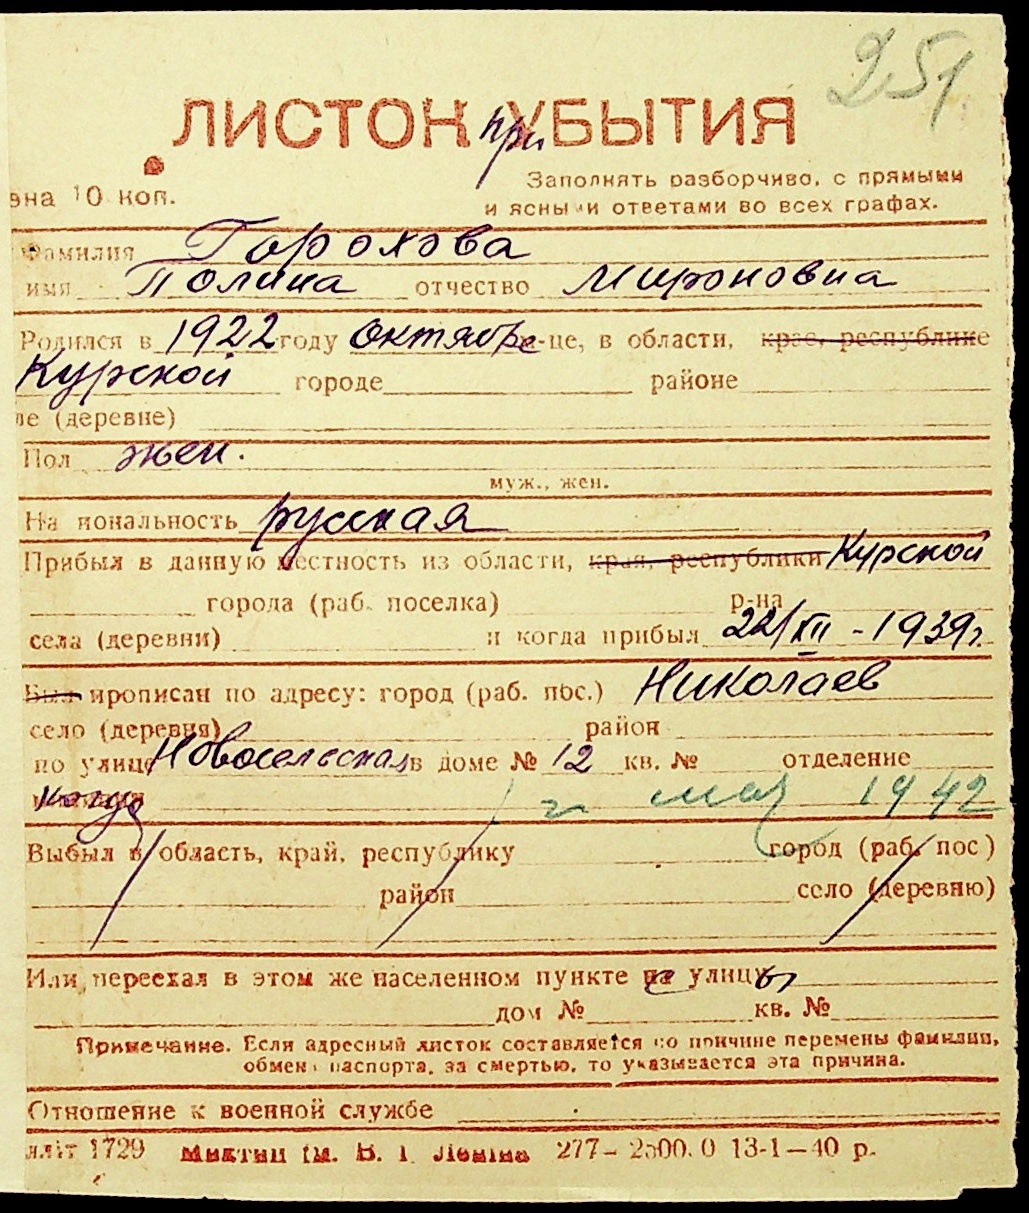 251
ЛИСТОК при УБЫТИЯ
ена 10 коп.
Заполнять разборчиво, с прямыми
и ясными ответами во всех графах.
Фамилия Горохова
имя Полина отчество Мироновна
Родился в 1922 году октябре м-це, в области, крае, республике
Курской городе районе
ле (деревне)
Пол жен.
муж., жен.
Национальность русская
Прибыл в данную местность из области, края, республики Курской
города (раб. поселка) р-на
села (деревни) и когда прибыл 22/XII - 1939г.
Был прописан по адресу: город (раб. пос.) Николаев
село (деревня) район
по улице Новосельская в доме № 12 кв. № отделение
когда 1942
Выбыл в область, край, республику город (раб. пос)
район село (деревню)
Или переехал в этом же населенном пункте на улицу
дом № кв. №
Примечание. Если адресный листок составляется по причине перемены фамилии,
обмена паспорта, за смертью, то указывается эта причина.
Отношение к военной службе
1729 им. В. І. Леніна 277– 2500.0 13-1–40 р.